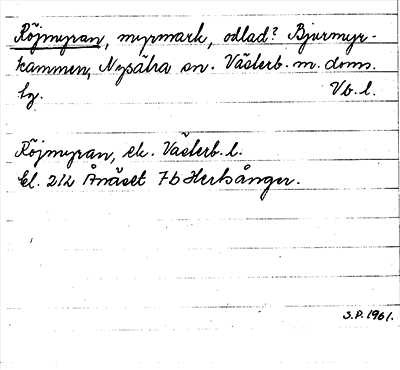 Röjmyran, myrmark, odlad? Bjurmyr-
kammen, Nysätra sn. Västerb. m. doms.
Vb. l.
Röjmyran, ek. Västerb. l.
El. 212 Ånäset 7b Hertsånger.
S.P. 1961.